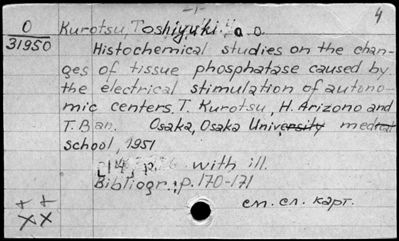 -1-
4
O
31950
Kurotsu, Toshiyuki. a. o.
Histochemical studies on the chan-
ges of tissue phosphatase caused by
the electrical stimulation of autono-
mic centers, T. Kurotsu, H. Arizono and
T. Ban. Osaka, Osaka University medical
school, 1951
with ill.
Bibliogr.: p. 170-171
см. сл. карт.
++
XX